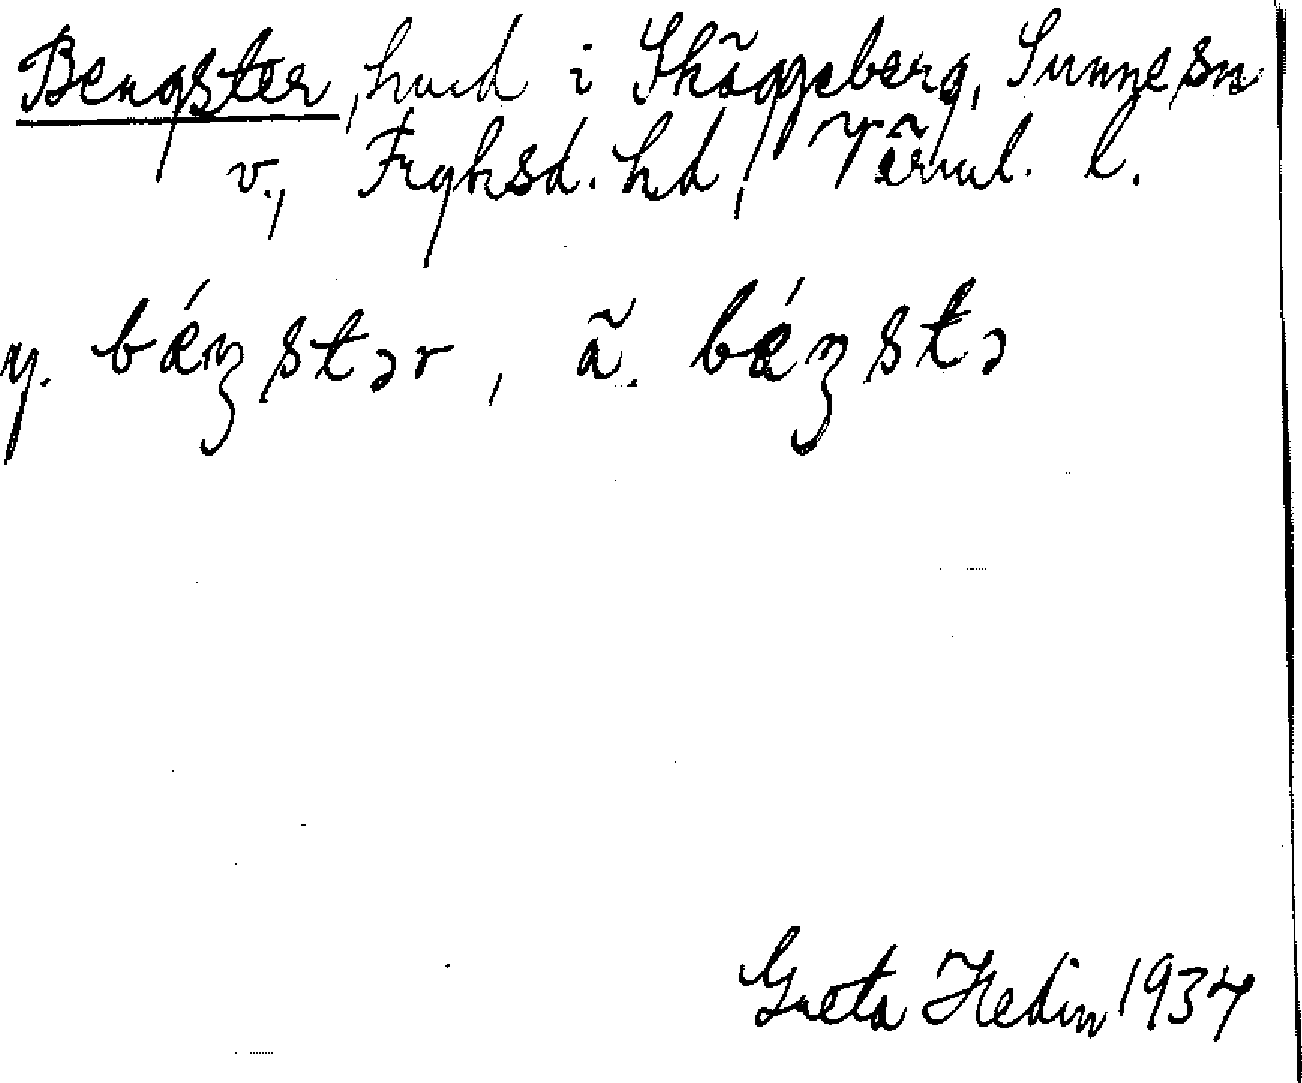 Bengster, hmd i Skäggeberg, Sunne sn
v., Fryksd. hd, Värml. l.
y. bǽŋstər, ä. bǽŋstə
Greta Hedin 1934